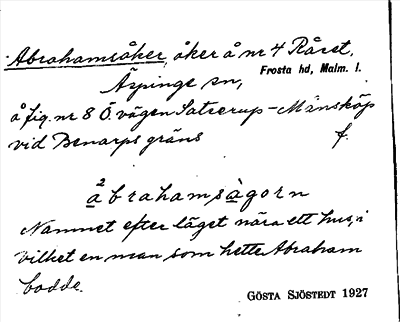 Abrahamsåker, åker å nr 4 Råset,
Frosta hd, Malm. l.
Äspinge sn,
å fig. nr 8 Ö. vägen Satserup-Månsköp
vid Benarps gräns f.
2
abrahamsàgorn
Namnet efter läget nära ett hus, i
vilket en man som hette Abraham
bodde.
GÖSTA SJÖSTEDT 1927